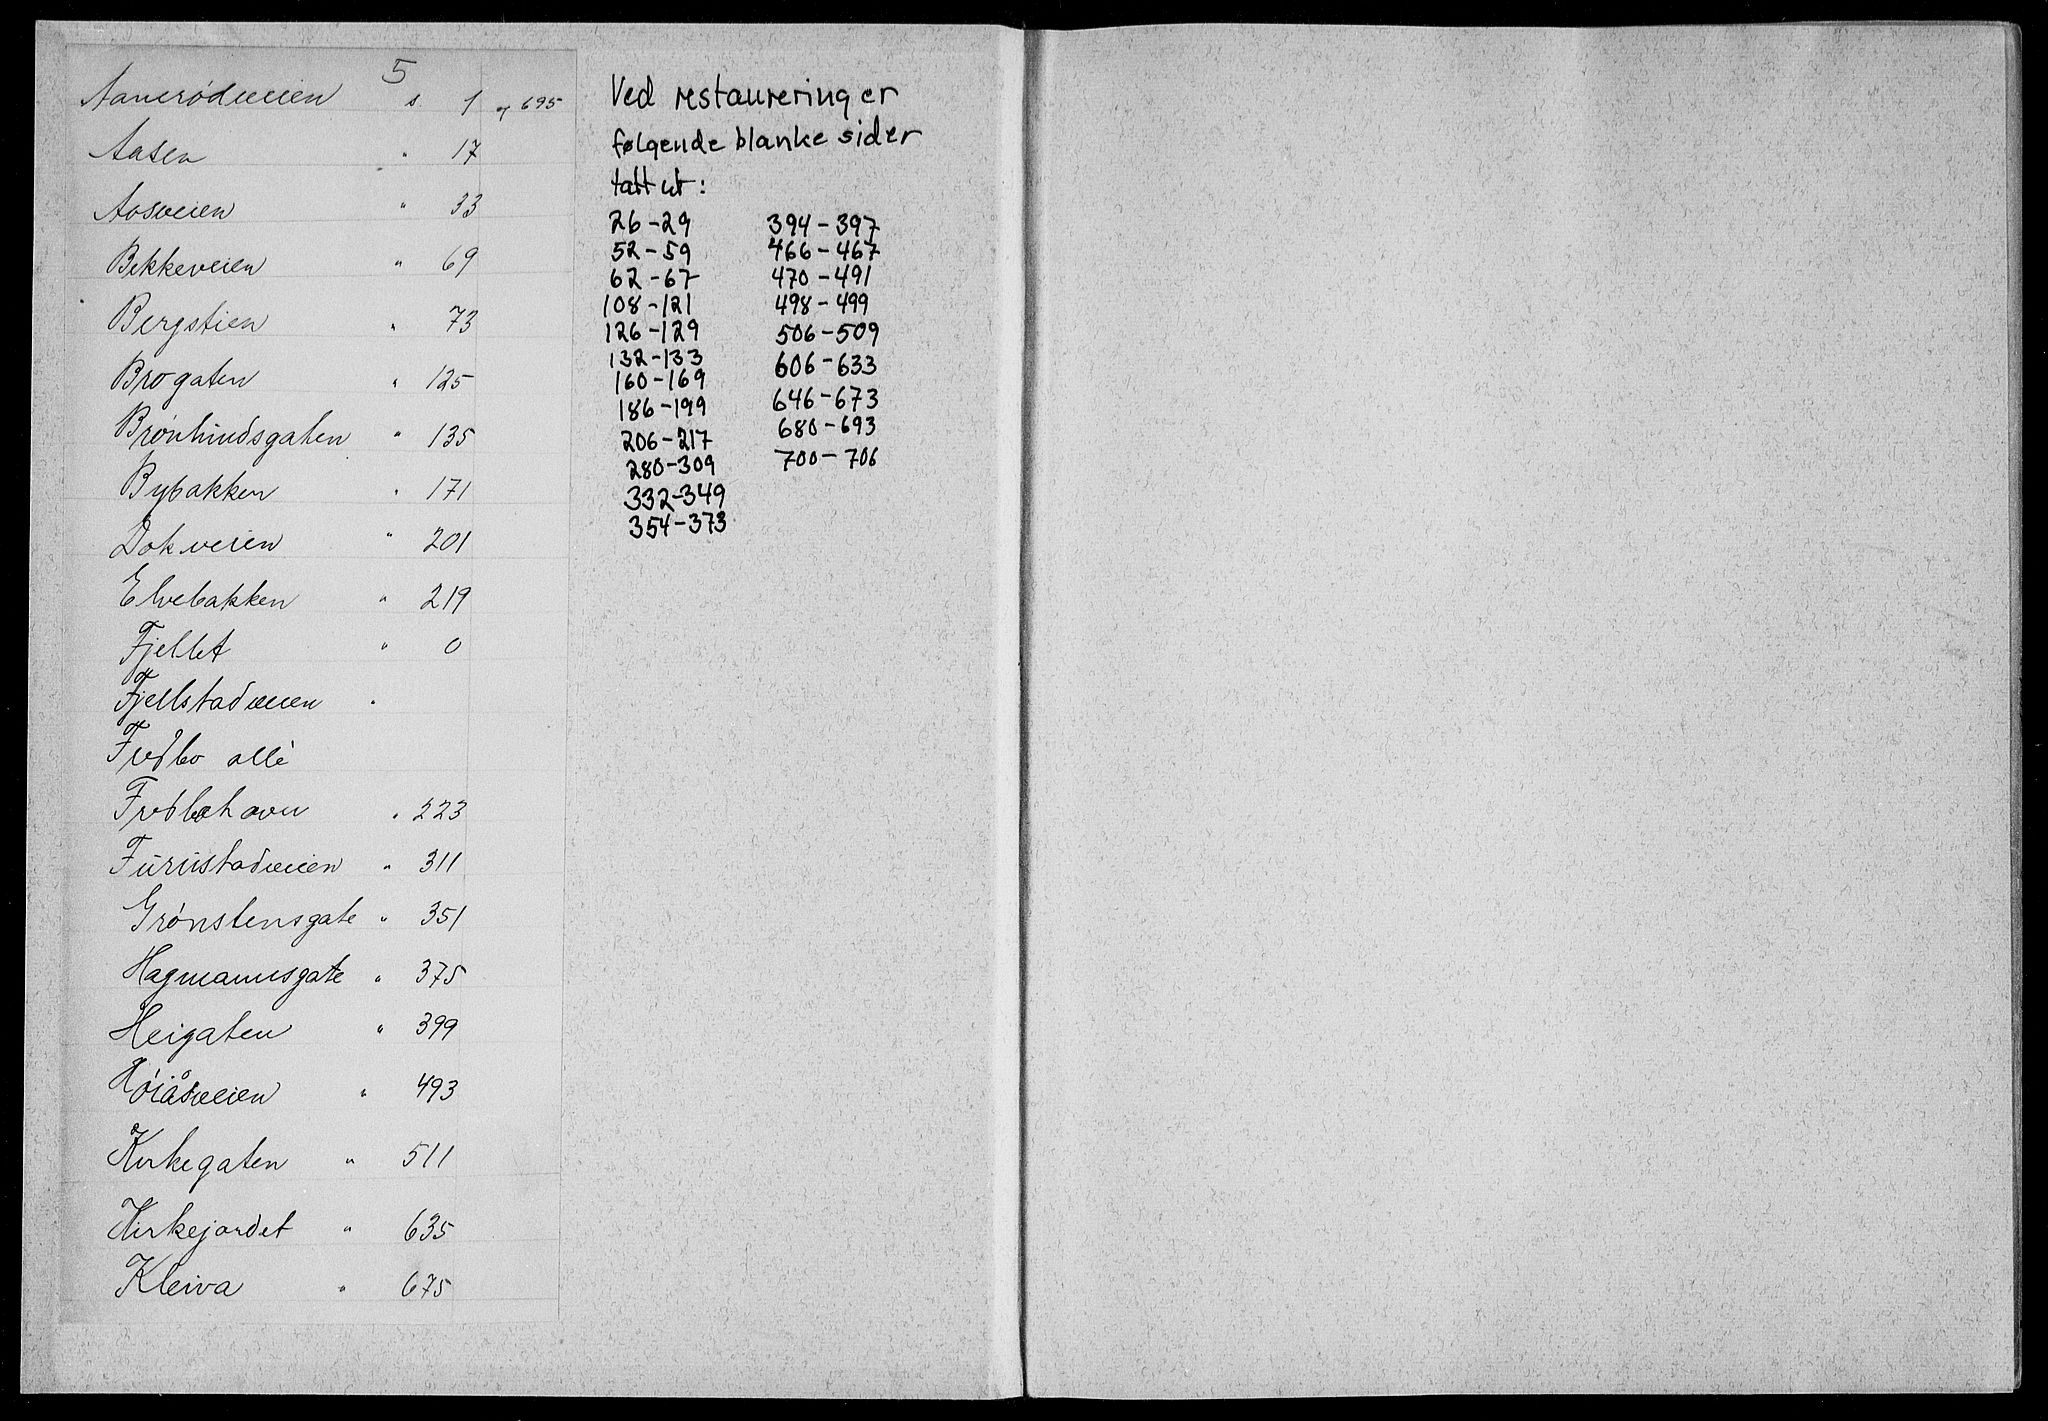 5
Aanerødveien s. 1 og 695
Aasen " 17
Aasveien " 33
Bekkeveien " 69
Bergstien " 73
Brogaten " 125
Brønlundsgaten " 135
Bybakken " 171
Dokveien " 201
Elvebakken " 219
Fjellet " 0
Fjellstadveien "
Fredbo allé
Fredbohavn " 223
Furustadveien " 311
Grønstensgate " 351
Hagmannsgate " 375
Heigaten " 399
Høiåsveien " 493
Kirkegaten " 511
Kirkejordet " 635
Kleiva " 675
Ved restaurering er
følgende blanke sider
tatt ut:
26-29
52-59
62-67
108-121
126-129
132-133
160-169
186-199
206-217
280-309
332-349
354-373
394-397
466-467
470-491
498-499
506-509
606-633
646-673
680-693
700-706